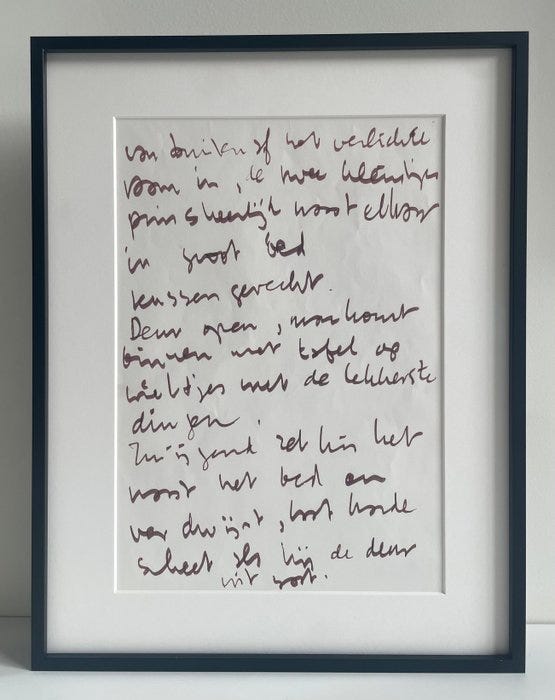 van buiten af het verlichte
raam in, de twee kleintjes
prinsheerlijk naast elkaar
in groot bed
kussengevecht.
Deur open, man komt
binnen met tafel op
wieltjes met de lekkerste
dingen.
Zwijgend zet hij het
naast het bed en
verdwijnt, laat harde
scheet als hij de deur
uit gaat.